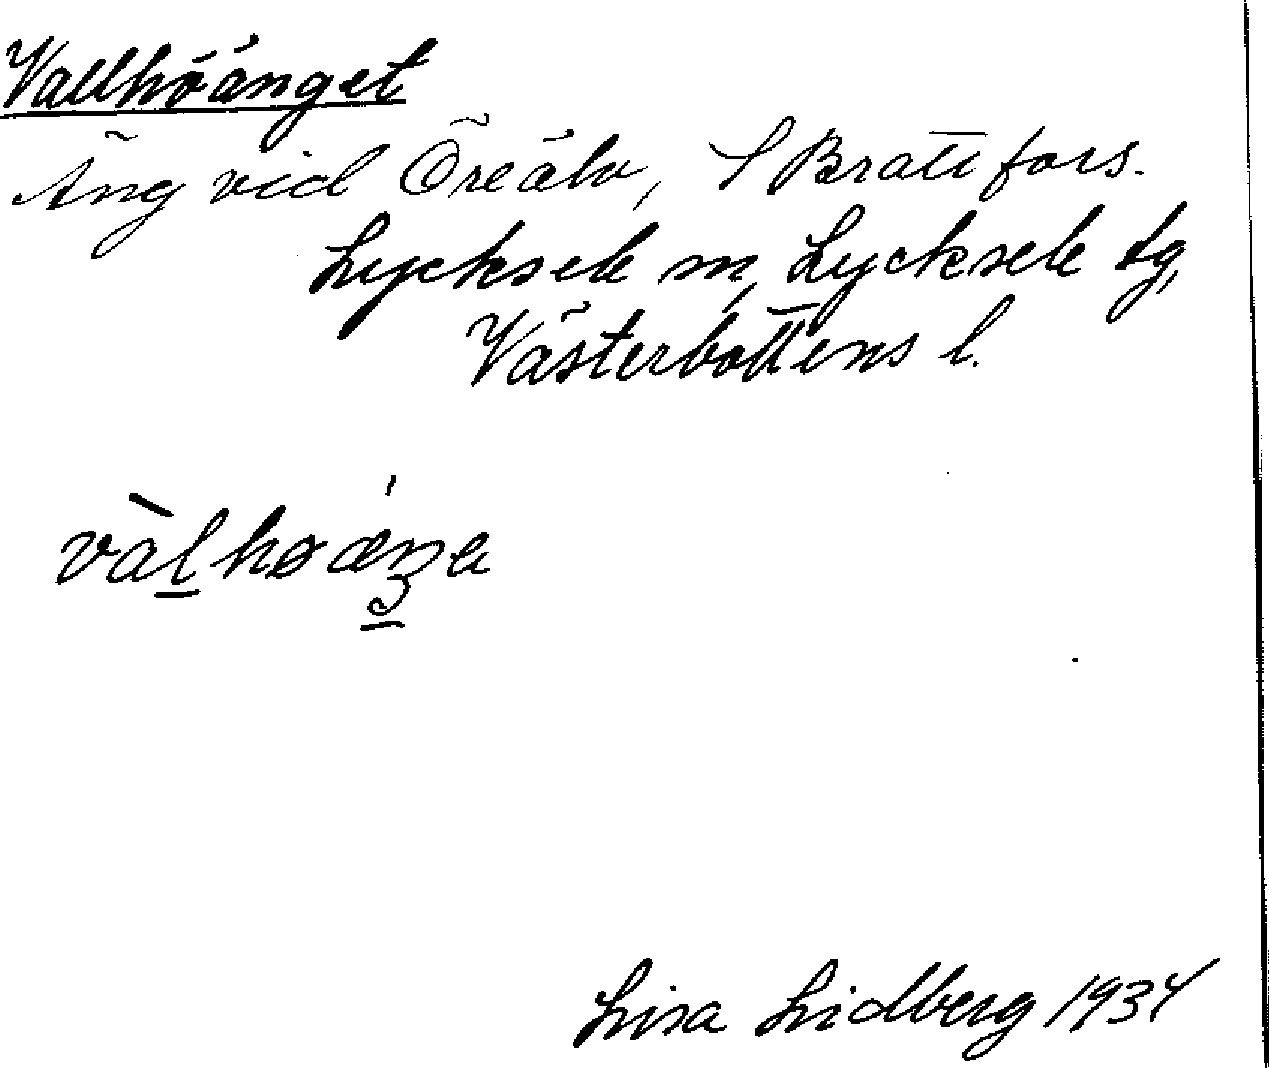 Vallhöänget
Äng vid Öreälv, S Brattfors.
Lycksele sn, Lycksele tg,
Västerbottens l.
Lisa Lidberg 1934